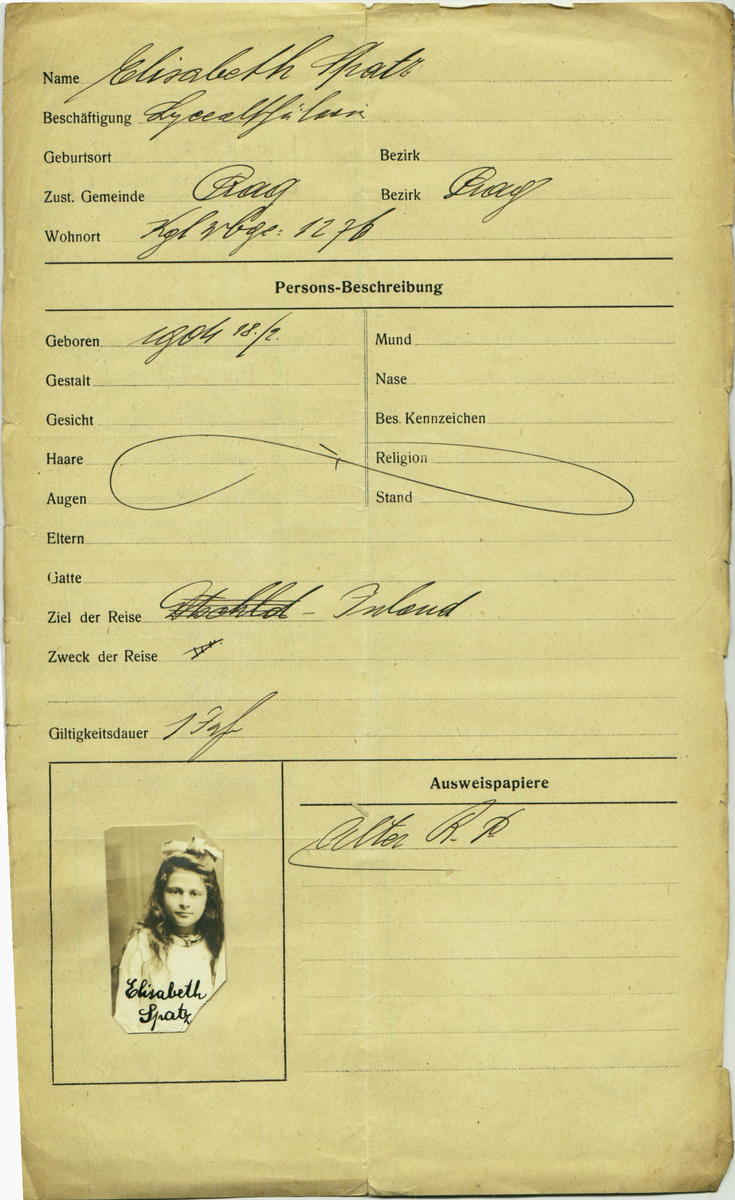 Name Elisabeth Spatz
Beschäftigung Lycealschülerin
Geburtsort Bezirk
Zust. Gemeinde Prag Bezirk Prag
Wohnort Kgl Wbge: 1276
Persons-Beschreibung
Geboren 1904 18./2. Mund
Gestalt Nase
Gesicht Bes. Kennzeichen
Haare Religion
Augen Stand
Eltern
Gatte
Ziel der Reise Dtschld - Inland
Zweck der Reise
Giltigkeitsdauer 1 Jahr
Ausweispapiere
Alter R. P.
Elisabeth
Spatz